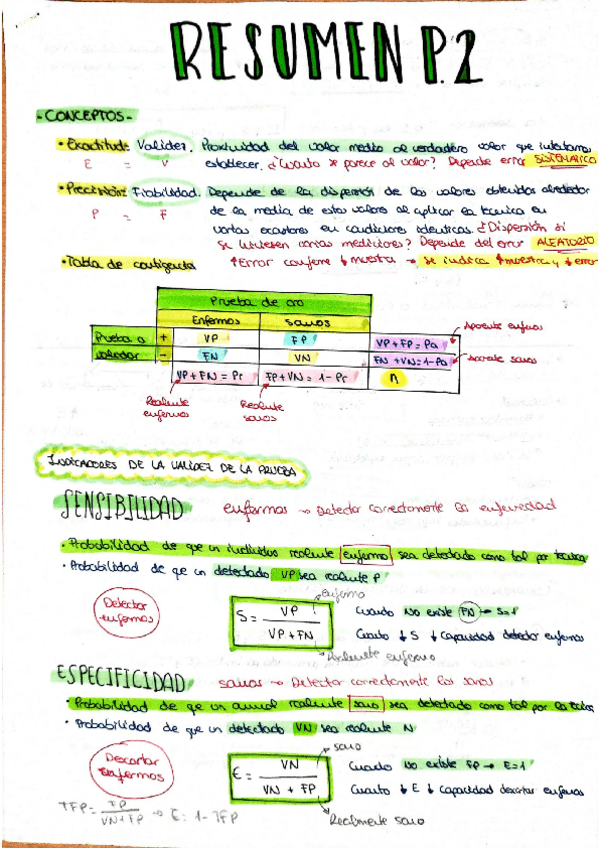 RESUMEN P.2
- CONCEPTOS -
• Exactitud: Validez. Proximidad del valor medio al verdadero valor que intentamos
E = V establecer. ¿Cuanto se parece al valor? Depende error SISTEMATICO
• Precisión: Fiabilidad. Depende de la dispersión de los valores obtenidos alrededor
P = F de la media de estos valores al aplicar la tecnica en
varias ocasiones en condiciones identicas. ¿Dispersión si
se hiciesen varias mediciones? Depende del error ALEATORIO
• Tabla de contingencia ↑Error conforme ↓muestra → se indica ↑muestra y ↓error
Prueba de oro
Enfermos Sanos
Prueba a + VP FP VP + FP = Pa Aparente enfermos
validar - FN VN FN + VN = 1 - Pa Aparente sanos
VP + FN = Pr FP + VN = 1 - Pr n
Realmente enfermos
Realmente sanos
INDICADORES DE LA VALIDEZ DE LA PRUEBA
SENSIBILIDAD enfermos → Detectar correctamente la enfermedad
• Probabilidad de que un individuo realmente enfermo sea detectado como tal por tecnica
• Probabilidad de qe un detectado VP sea realmente P
enfermo
Detectar enfermos
S = VP / VP + FN
Cuando No existe FN → S = 1
Cuanto ↓ S ↓ capacidad detectar enfermos
Realmente enfermo
ESPECIFICIDAD sanos → Detectar correctamente los sanos
• Probabilidad de qe un animal realmente sano sea detectado como tal por la tecnica
• Probabilidad de que un detectado VN sea realmente N
sano
Descartar enfermos
E = VN / VN + FP
Cuando No existe FP → E = 1
Cuanto ↓ E ↓ capacidad descartar enfermos
TFP = FP / VN + FP → E: 1 - TFP
Realmente sano